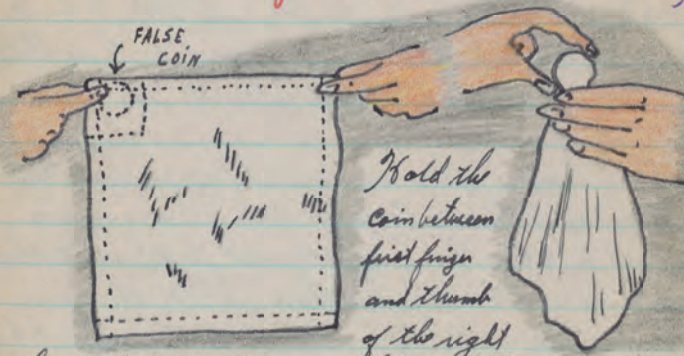 FALSE
COIN
Hold the
coin between
first finger
and thumb
of the right